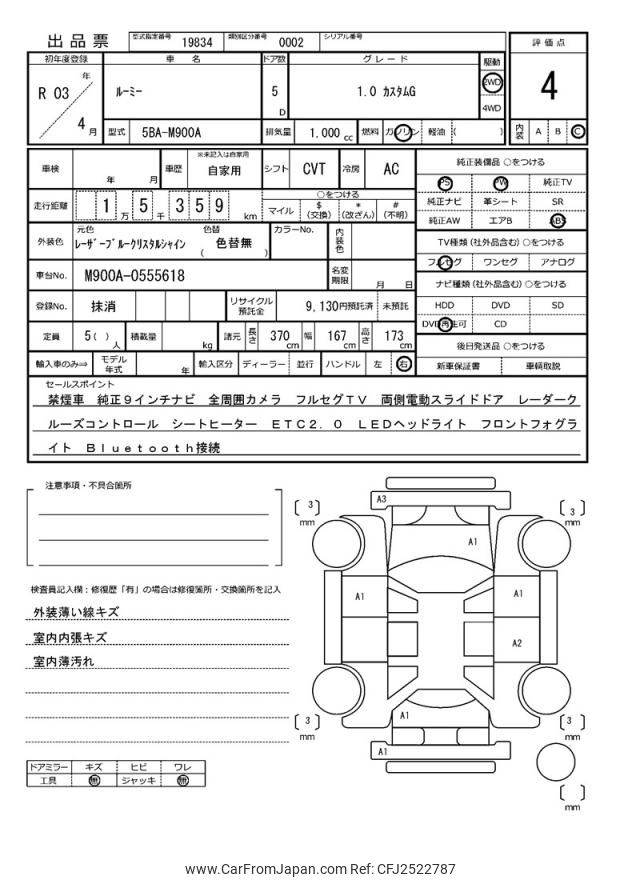 出品票 型式指定番号 19834 類別区分番号 0002 シリアル番号
評価点
4
内装 A B C
初年度登録 車名 ドア数 グレード 駆動
R 03 年 4 月
ルーミー 5 D 1.0 カスタムG 2WD 4WD
型式 5BA-M900A 排気量 1.000 cc 燃料 ガソリン 軽油 ( )
車検 年 月 車歴 ※未記入は自家用 自家用 シフト CVT 冷房 AC
走行距離 1 万 5 千 3 5 9 km ○をつける マイル $ (交換) * (改ざん) # (不明)
外装色 元色 レーザーブルークリスタルシャイン 色替 ( 色替無 ) カラーNo. 内装色
車台No. M900A-0555618 名変期限 月 日
登録No. 抹消 リサイクル預託金 9,130円預託済 未預託
定員 5( ) 人 積載量 kg 諸元 長さ 370 cm 幅 167 cm 高さ 173 cm
輸入車のみ⇒ モデル年式 年 輸入区分 ディーラー 並行 ハンドル 左 右
純正装備品 ○をつける
PS PW 純正TV
純正ナビ 革シート SR
純正AW エアB ABS
TV種類 (社外品含む) ○をつける
フルセグ ワンセグ アナログ
ナビ種類 (社外品含む) ○をつける
HDD DVD SD
DVD再生可 CD
後日発送品 ○をつける
新車保証書 車輌取説
セールスポイント
禁煙車 純正9インチナビ 全周囲カメラ フルセグTV 両側電動スライドドア レーダーク
ルーズコントロール シートヒーター ETC2.0 LEDヘッドライト フロントフォグラ
イト Bluetooth接続
注意事項・不具合箇所
検査員記入欄：修復歴「有」の場合は修復箇所・交換箇所を記入
外装薄い線キズ
室内内張キズ
室内薄汚れ
ドアミラー キズ ヒビ ワレ
工具 無 ジャッキ 無
〔 3 〕 mm
A3
〔 3 〕 mm
A1
A1
A1
A2
A1
〔 3 〕 mm
A1
〔 3 〕 mm
〔 〕 mm
www.CarFromJapan.com Ref: CFJ2522787